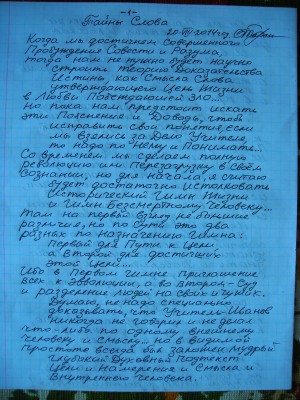 - 1 -
Тайны Слова
20.VIII.2014г.
Когда мы достигнем Совершенного
Пробуждения Совести и Разума,
тогда нам не нужно будет научно
строить теорию доказательства
Истины, как Смысла Слова,
утверждающего Цель Жизни
в Любви Побеждающей Зло...
Но пока нам предстоит искать
эти Пояснение и Доводы, чтоб
исправить свои понятия, если
мы взялись за Дело Учителя
то надо по Нему и Понимать...
Со временем мы сделаем полную
Революцию или Перезагрузку в своём
Сознании, но для начала, я считаю
будет достаточно истолковать
Исторический Гимн Жизни
и Гимн Бессмертному Человеку...
Там на первый взгляд не большие
различие, но по сути это два
разных по Назначению Гимна:
Первый для Пути к Цели,
а второй для достигших
этой Цели...
Ибо в Первом Гимне приглашение
всех к Эволюции, а во втором - Суд
и разделение людей на своих и чужих.
Думаю, не надо специально
доказывать, что Учитель Иванов
никогда не говорил и не делал
что-либо по одному внешнему
человеку и смыслу... но в видимой
простоте всегда был заложен мудрый
глубокий Духовный Подтекст
Цели и Намерения и Смысла и
Внутреннего Человека.